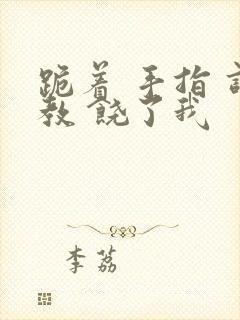 跪着 手指
教 饶了我
李荔